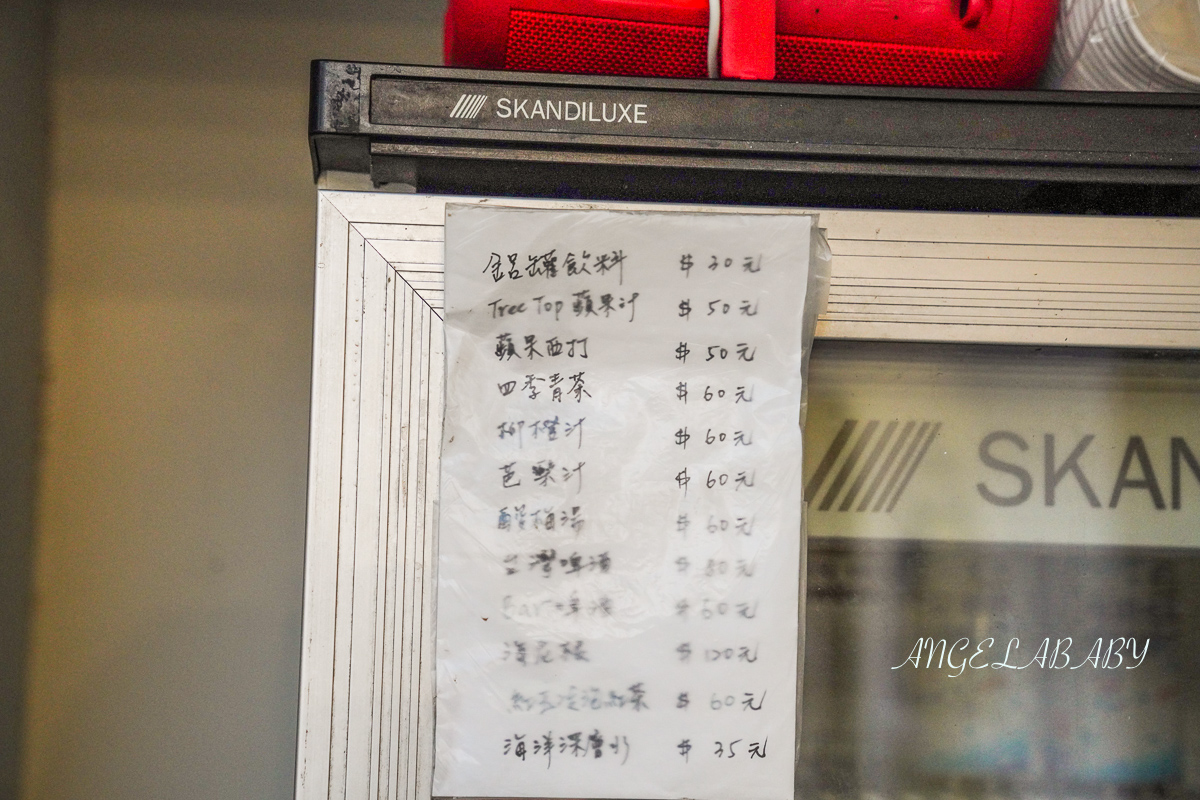 SKANDILUXE
鋁罐飲料 $30元
Tree Top 蘋果汁 $50元
蘋果西打 $50元
四季青茶 $60元
柳橙汁 $60元
芭樂汁 $60元
酸梅湯 $60元
台灣啤酒 $80元
Bar 啤酒 $60元
海尼根 $120元
$60元
海洋深層水 $35元
SKAN
ANGELABABY